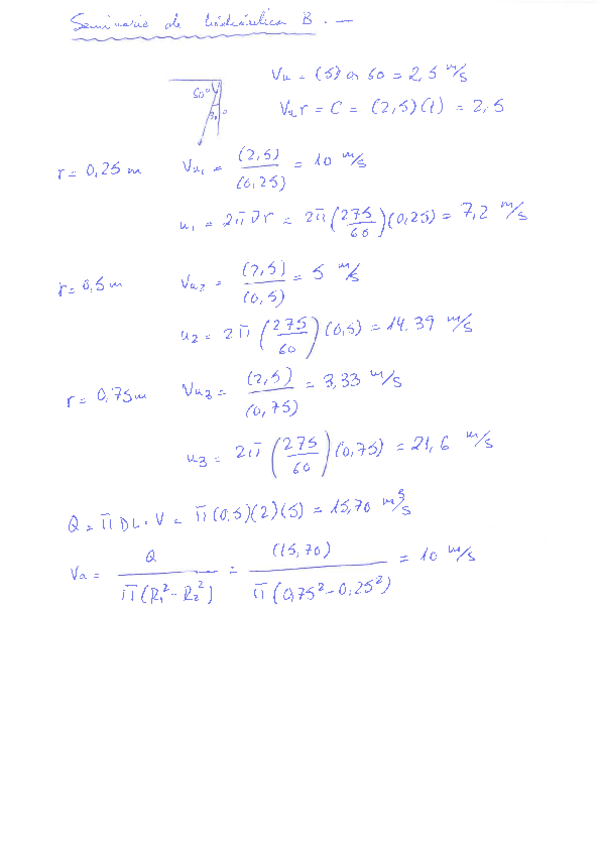 Seminario de hidráulica B. —
60°
30°
Vu = (5) cos 60 = 2,5 m/s
Vu r = C = (2,5)(1) = 2,5
r = 0,25 m Vu1 = (2,5)/(0,25) = 10 m/s
u1 = 2π∂r = 2π(275/60)(0,25) = 7,2 m/s
r = 0,5 m Vu2 = (2,5)/(0,5) = 5 m/s
u2 = 2π(275/60)(0,5) = 14.39 m/s
r = 0,75m Vu3 = (2,5)/(0,75) = 3,33 m/s
u3 = 2π(275/60)(0,75) = 21,6 m/s
Q = π DL·V = π(0,5)(2)(5) = 15,70 m³/s
Va = Q/π(R1²-R2²) = (15,70)/π(0,75²-0,25²) = 10 m/s